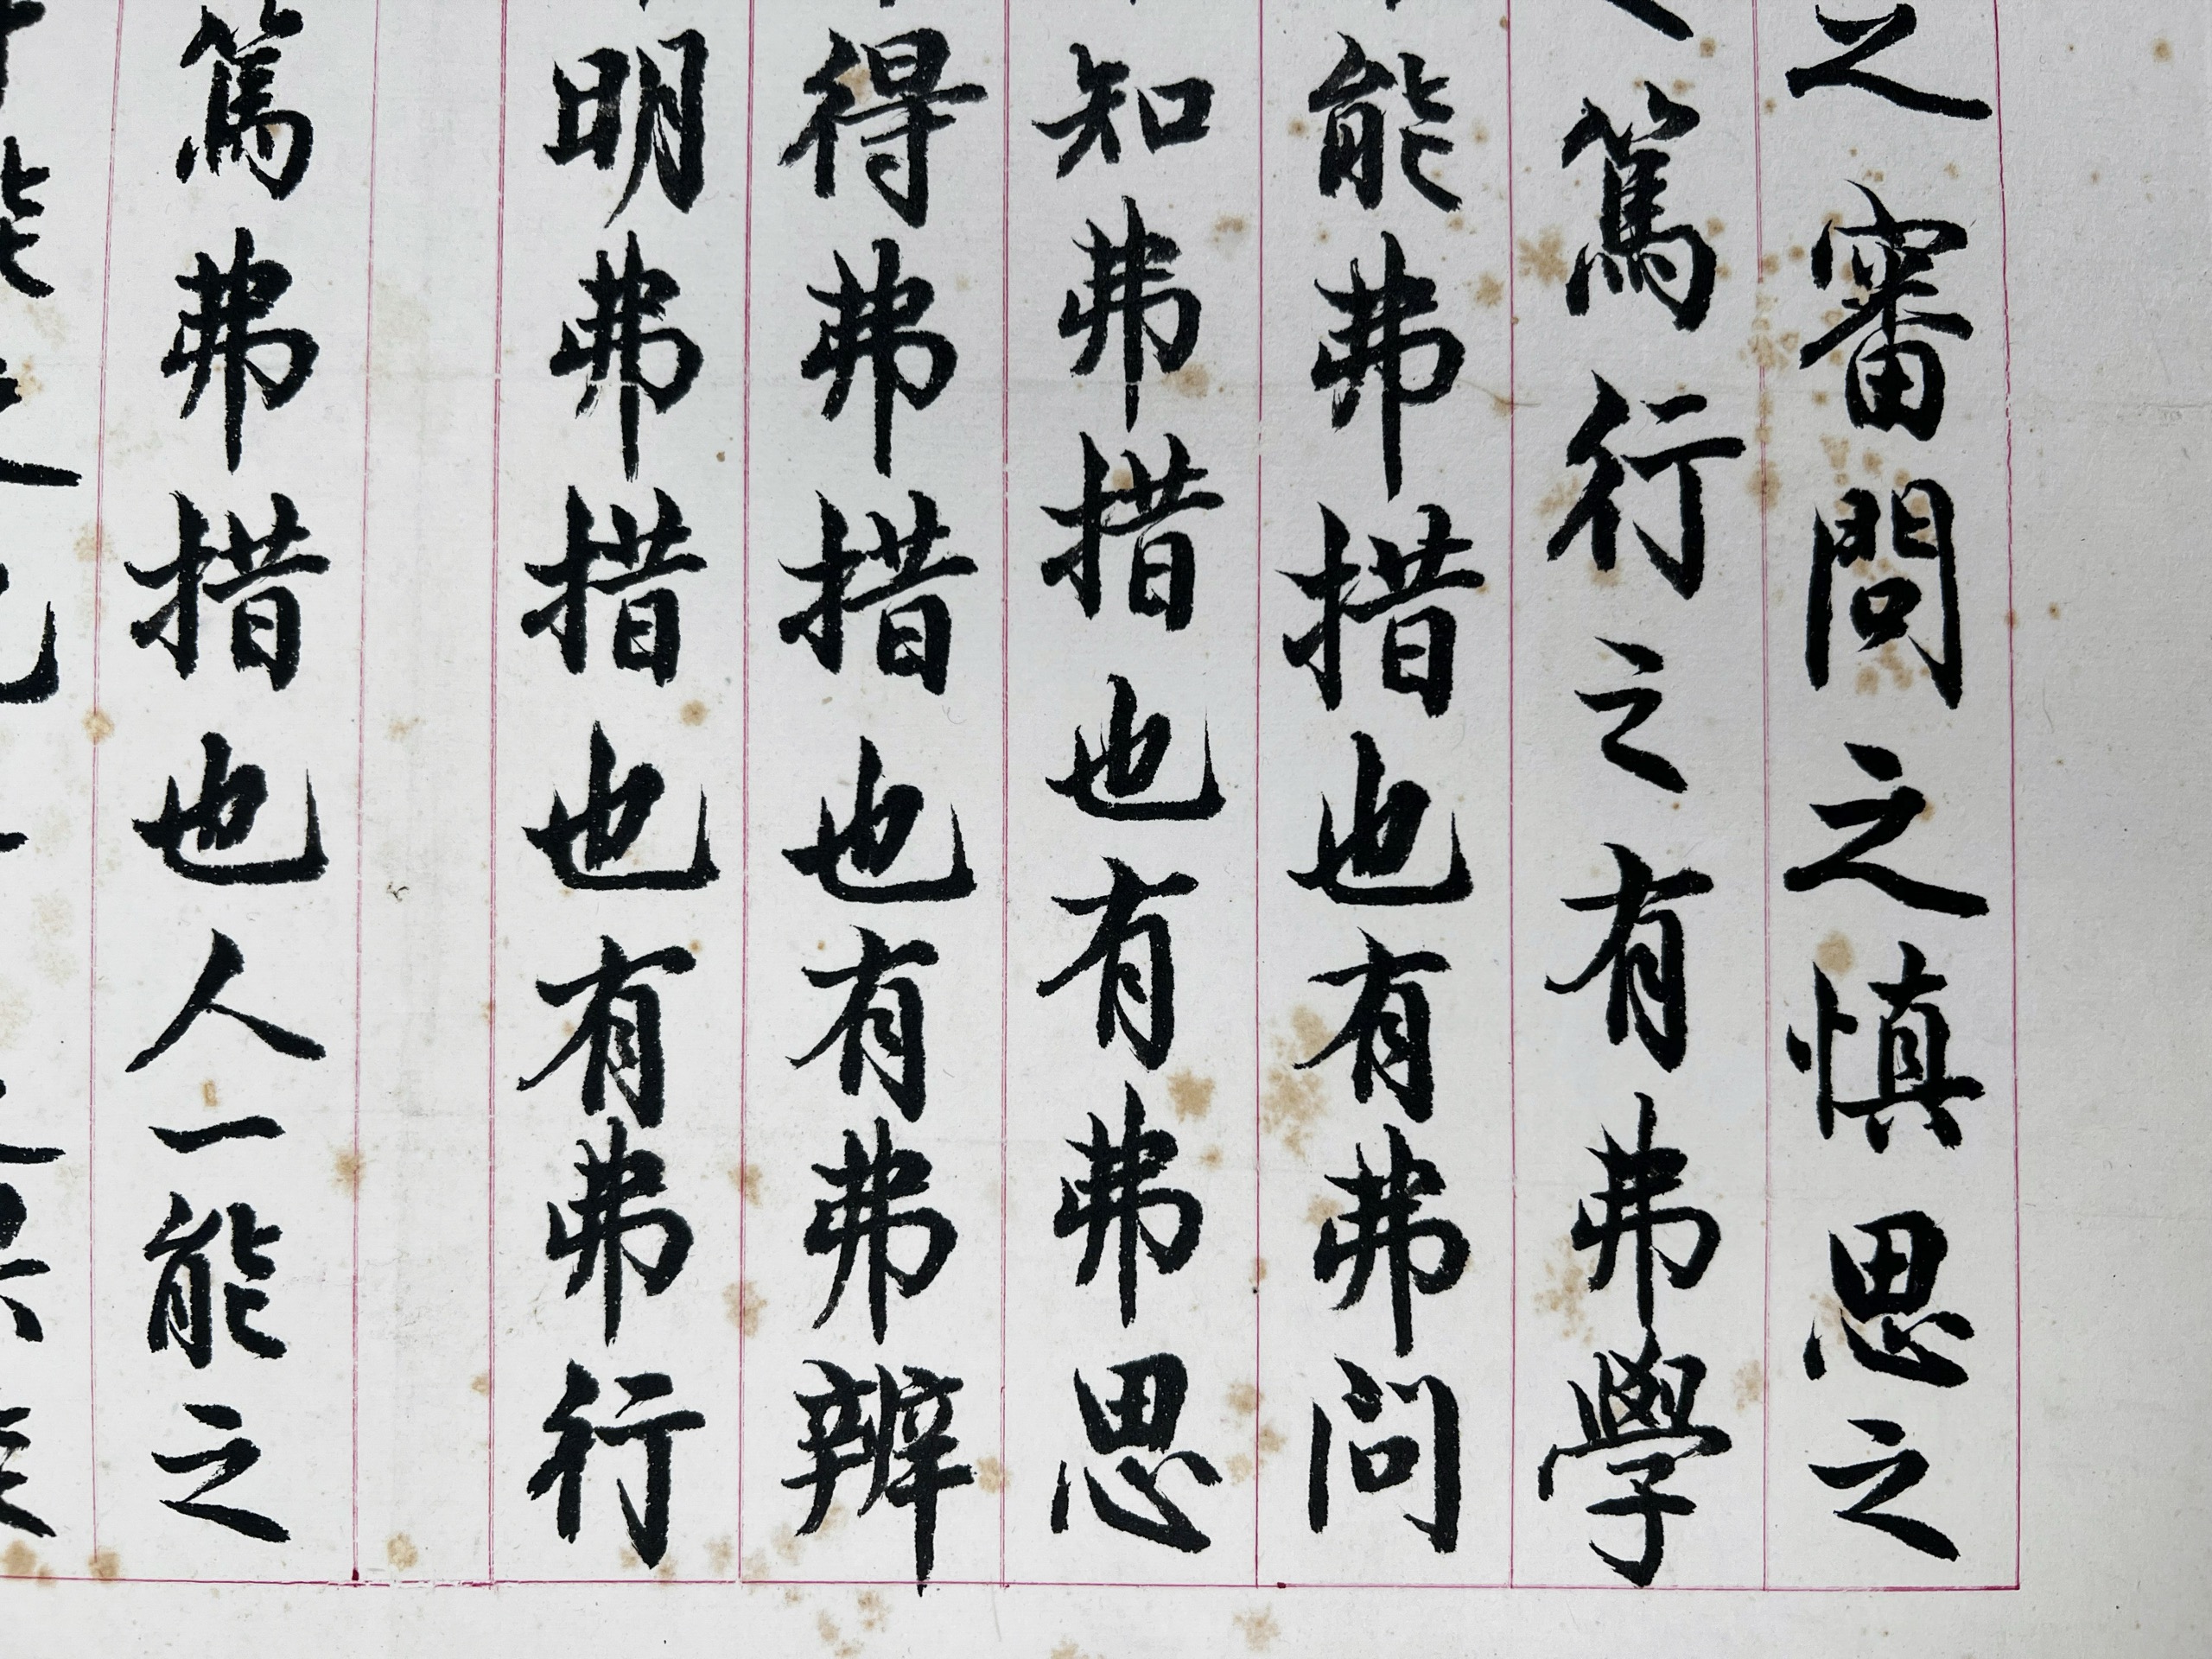 之審問之慎思之
篤行之有弗學
能弗措也有弗問
知弗措也有弗思
得弗措也有弗辨
明弗措也有弗行
篤弗措也人一能之